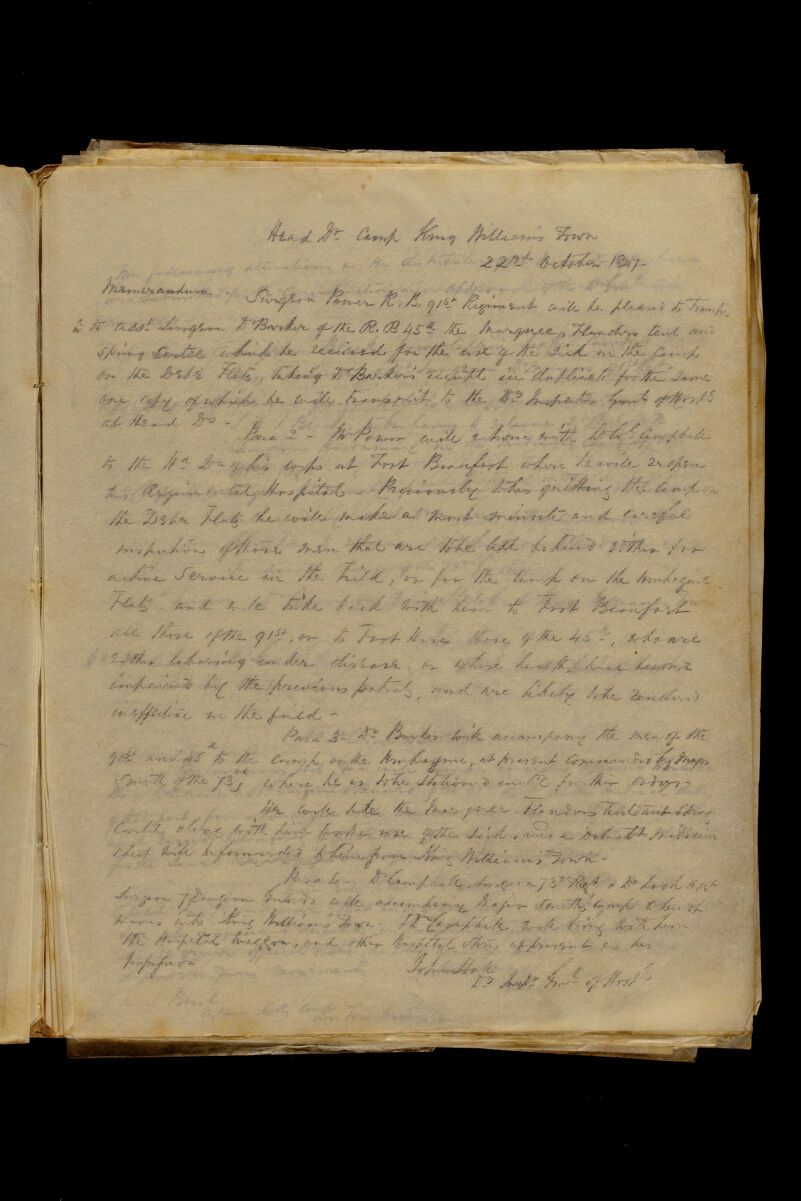 Head Qrs Camp King William's Town
22nd October 1847-
Memorandum - Surgeon Power R. B. 91st Regiment will be pleased to transfer
to Asst Surgeon Dr Barker of the R. B. 45th the Marquee, Flanders tent and
Spring Cart which he received for the use of the Sick on the Camp
on the Debe Flats, taking Dr Barker's receipt in duplicate for the same
one copy of which he will transmit to the Dy Inspector Genl of Hospls
at Head Qrs -
Para 2 - Mr Power will return with Lt Col Campbell
to the Hd Qrs of his corps at Fort Beaufort where he will reopen
his Regimental Hospital - Previously to his quitting the Camp on
the Debe Flats he will make a most minute and careful
inspection of those men that are to be left behind either for
active Service in the Field, or for the Camp on the
Flats and will take back with him to Fort Beaufort
all those of the 91st, or to Fort Hare those of the 45th, who are
either laboring under disease, or whose health have become
impaired by the previous patrols, and are likely to be rendered
ineffective in the field -
Para 3 - Dr Barker will accompany the men of the
91st and 45th to the camp on the at present commanded by Major
Smith of the 73rd, where he is to be stationed until further orders -
He will take the Marquee Flanders tent and Spring
Cart along with him for the use of the Sick, and a Medicine
Chest will be forwarded to him from King William's Town -
Para 4 - Dr Campbell Surgeon 73rd Regt & Dr Asst
Surgeon 7 Dragoon Guards will accompany Major Smith's Camp when it
moves into King William's Town. Dr Campbell will bring with him
the Hospital Waggon, and other Hospital stores at present in his
Possession
John Hall
Dy Inspr Genl of Hospls